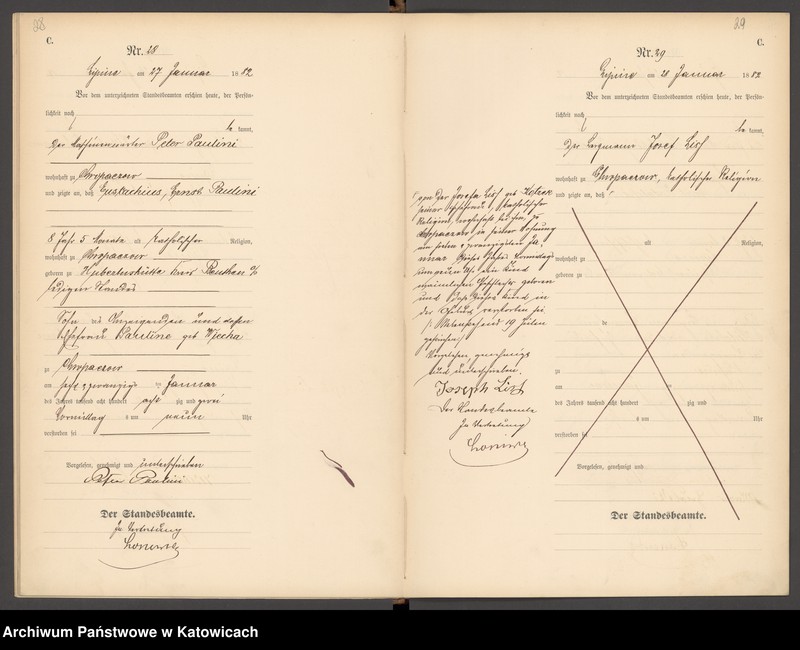 38
C.
Nr. 28
Lipine am 27 Januar 1882
Vor dem unterzeichneten Standesbeamten erschien heute, der Persön-
lichkeit nach
be kannt,
Der Peter Paulini
wohnhaft zu Chropaczow
und zeigte an, daß Eustachius, Ernst Paulini
8 Jahr 5 Monate alt katholischer Religion,
wohnhaft zu Chropaczow
geboren zu Hubertushütte Kreis Beuthen O/S
ledigen Standes
Sohn des Anzeigenden und dessen
Ehefrau Pauline geb
zu Chropaczow
am sechs u zwanzigsten Januar
des Jahres tausend acht hundert acht zig und zwei
Vormittag s um neun Uhr
verstorben sei
Vorgelesen, genehmigt und unterschrieben
Peter Paulini
Der Standesbeamte.
In Vertretung
39
C.
Nr. 29
Lipine am 28 Januar 1882
Vor dem unterzeichneten Standesbeamten erschien heute, der Persön-
lichkeit nach
be kannt,
Der Bergmann Josef
wohnhaft zu Chropaczow, katholischer Religion
und zeigte an, daß
von der Josefa geb
seiner Ehefrau, katholischer
Religion, wohnhaft bei ihm zu
Chropaczow in seiner Wohnung
am sieben u zwanzigsten Ja-
nuar dieses Jahres Vormittags
um Uhr ein Kind
männlichen Geschlechts geboren
und daß dieses Kind in
der Geburt verstorben sei
19 Zeilen
gestrichen
Vorgelesen, genehmigt
und unterschrieben.
Joseph
Der Standesbeamte
In Vertretung
alt Religion,
wohnhaft zu
geboren zu
de
zu
am
des Jahres tausend acht hundert zig und
s um Uhr
verstorben sei
Vorgelesen, genehmigt und
Der Standesbeamte.
Archiwum Państwowe w Katowicach